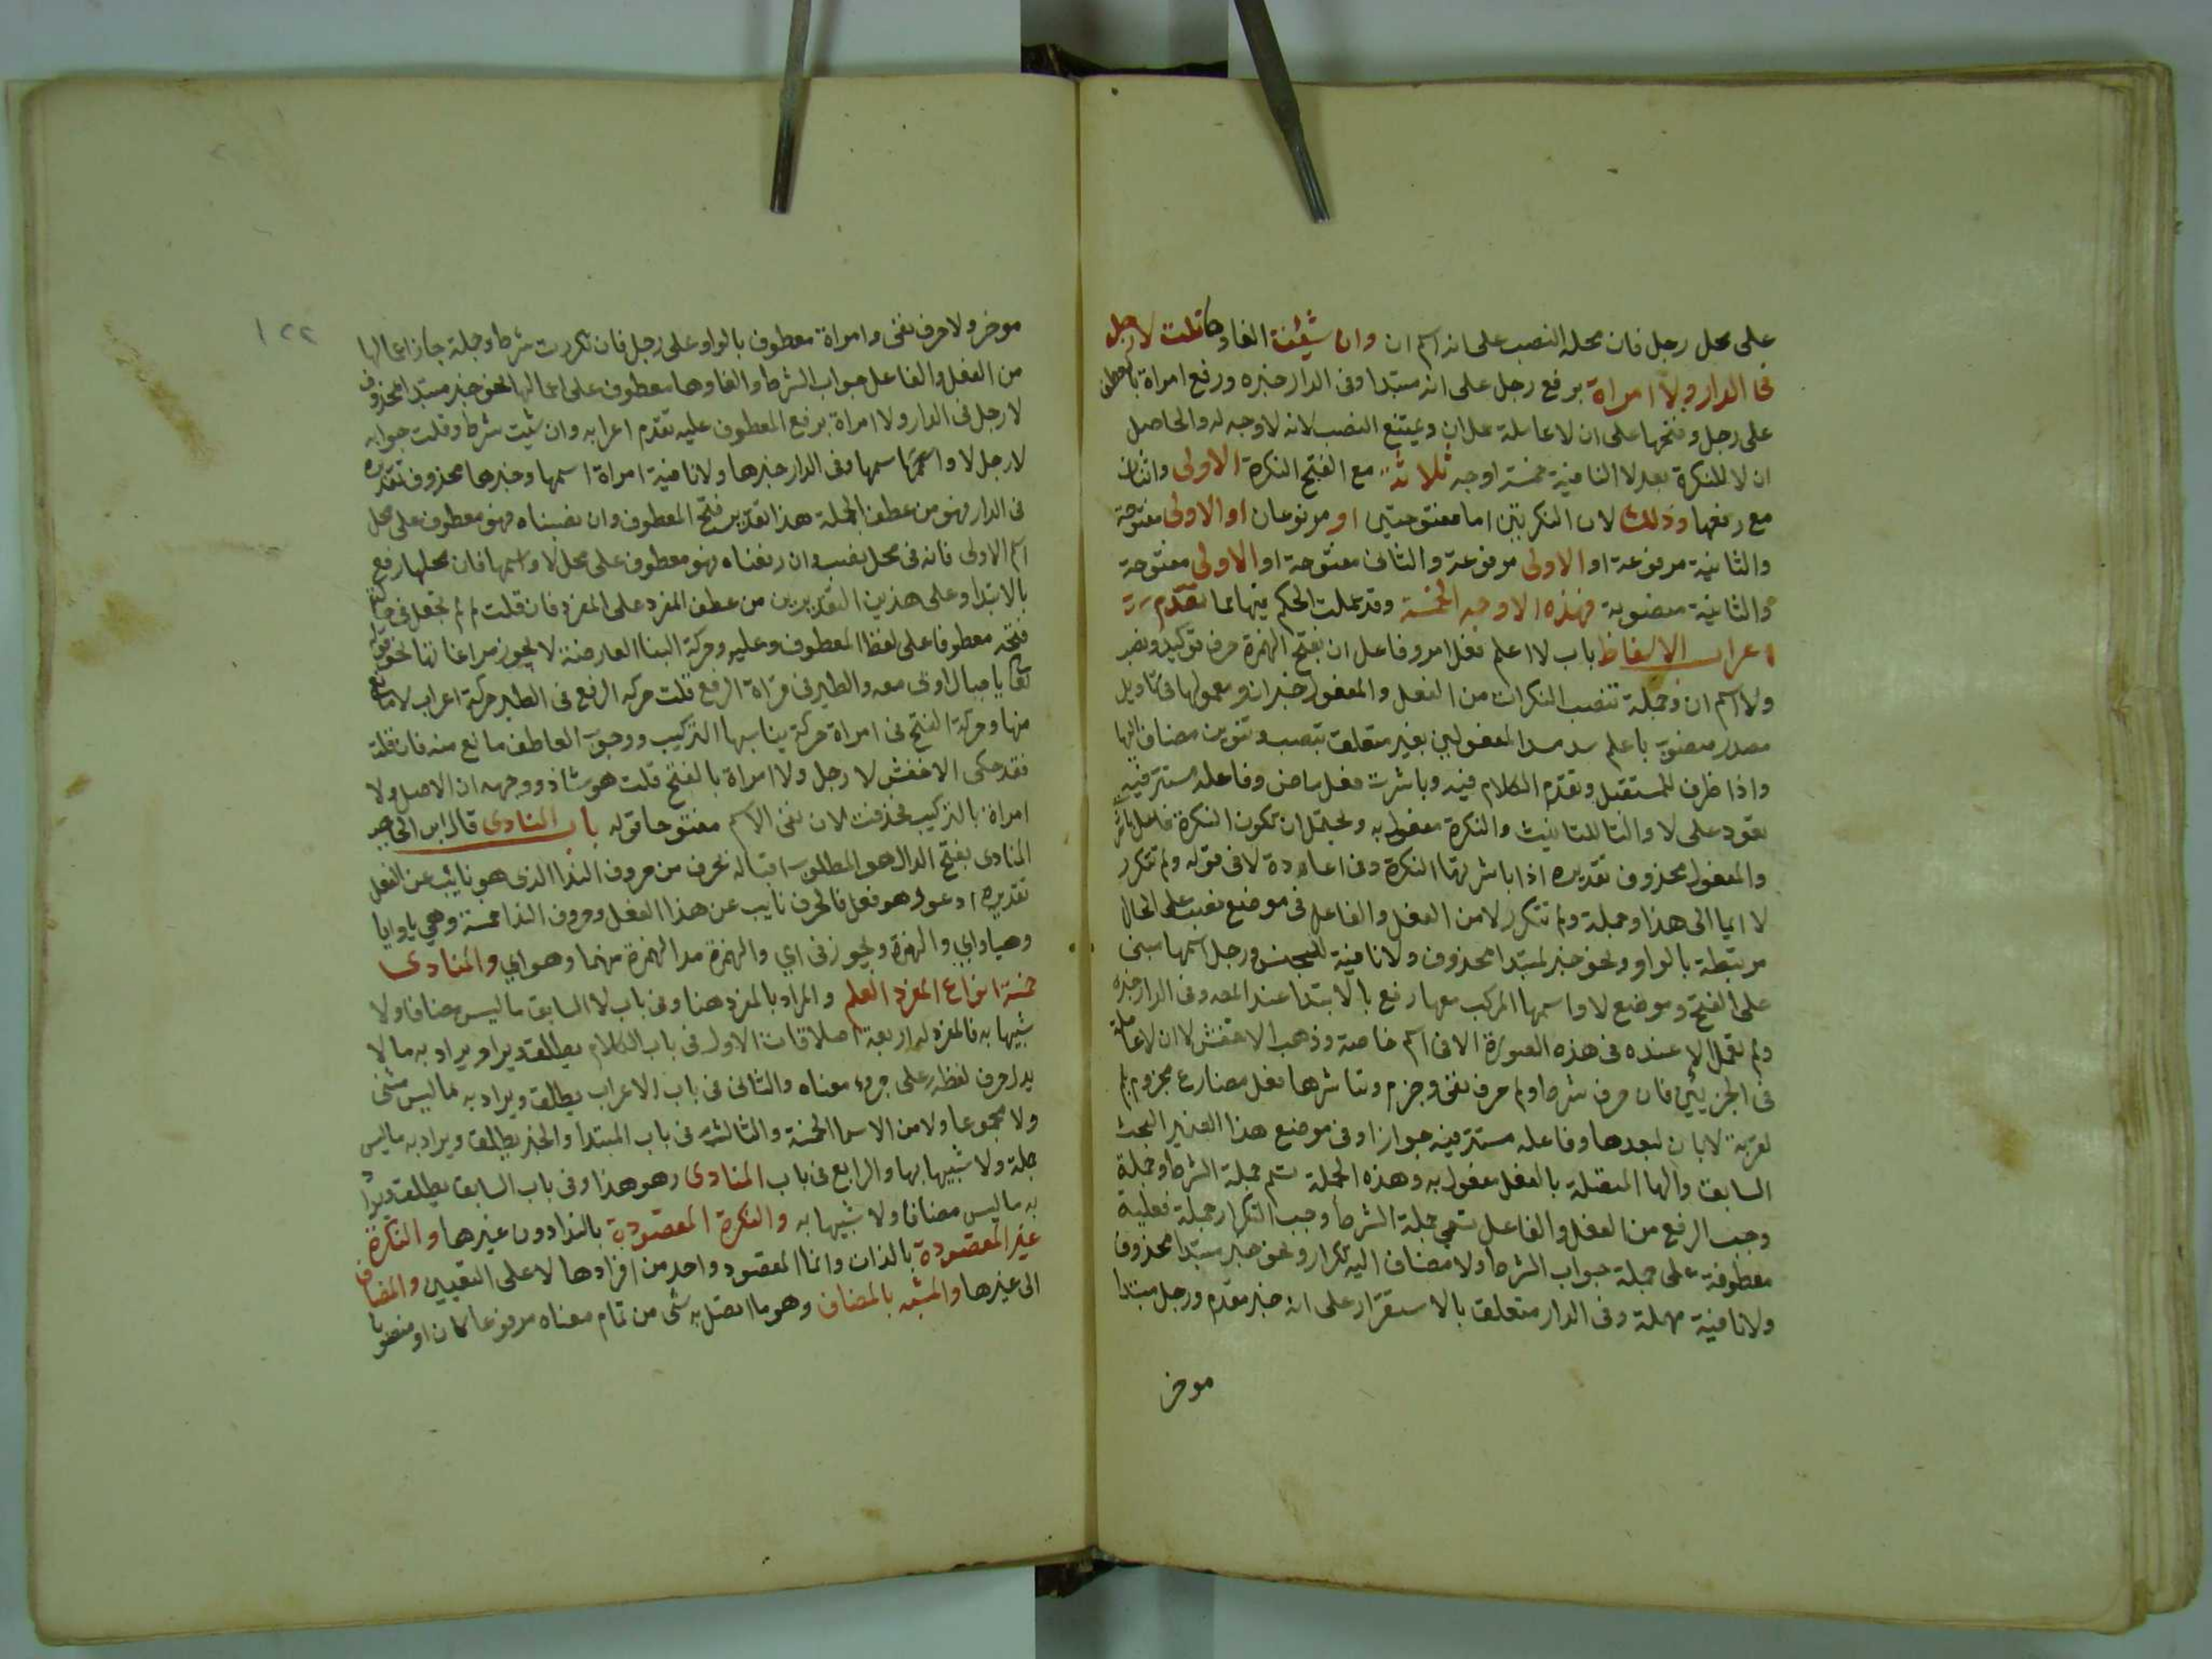 على محل رجل فان محله النصب على انه اسم ان وان شيئت الغاوها قلت لا رجل
فى الدار ولا امراة برفع رجل على انه مبتدا وفى الدار خبره ورفع امراة بالعطف
على رجل وفتحها على ان لا عاملة عمل ان ويمتنع النصب لانه لا وجه له والحاصل
ان للنكرة بعد لا النافية خمسة اوجه ثلاثة مع الفتح النكرة الاولى واثنان
مع رفعها وذلك لان النكرتين اما مفتوحتين او مرفوعان او الاولى مفتوحة
والثانية مرفوعة او الاولى مرفوعة والثانى مفتوحة او الاولى مفتوحة
والثانية منصوبة فهذه الاوجه الخمسة وقد عملت الحكم فيها بما تقدم
اعراب الالفاظ باب لا اعلم فعل امر وفاعل ان بفتح الهمزة حرف توكيد ونصب
ولا اسم ان وجملة تنصب النكرات من الفعل والمفعول خبر ان ومعمولها فى تاويل
مصدر منصوب باعلم سد مسد المفعولين بغير متعلق بتنصب وتنوين مضاف اليها
واذا ظرف للمستقبل وتقدم الكلام فيه وباشرت فعل ماض وفاعله مستتر فيه
يعود على لا والتا للتانيث والنكرة مفعول به ويحتمل ان تكون النكرة فاعل باشر
والمفعول محذوف تقديره اذا باشرتها النكرة وفى اعادة لا فى قوله ولم تتكرر
لا ايما الى هذا وجملة ولم تتكرر لا من الفعل والفاعل فى موضع نصب على الحال
مرتبطة بالواو ونحو خبر لمبتدا محذوف ولا نافية للجنس ورجل اسمها مبنى
على الفتح وموضع لا واسمها المركب معها رفع بالابتدا عند وفى الدار خبره
ولم تعمل لا عنده فى هذه الصورة الا فى اسم خاصة وذهب الاخفش لان لا عاملة
فى الجزئين فان حرف شرط ولم حرف نفى وجزم وتباشرها فعل مضارع مجزوم بلم
لا بان لبعدها وفاعله مستتر فيه جوازا وفى موضع هذا الضمير البحث
السابق والها المتصلة بالفعل مفعول به وهذه الجملة تسم جملة الشرط وجملة
وجب الرفع من الفعل والفاعل تسمى جملة الشرط ووجب التكرار جملة فعلية
معطوفة على جملة جواب الشرط ولا مضاف اليه تكرار ونحو خبر مبتدا محذوف
ولا نافية مهملة وفى الدار متعلق بالاستقرار على انه خبر مقدم ورجل مبتدا
موخر
١٢٢
موخر ولا حرف نفى وامراة معطوف بالواو على رجل فان تكررت شرط وجملة جاز اعمالها
من الفعل والفاعل جواب الشرط والغاوها معطوف على اعمالها نحو خبر مبتدا محذوف
لا رجل فى الدار ولا امراة برفع المعطوف عليه تقدم اعرابه وان شيت شرط وقلت جوابه
لا رجل لا واسمها وفى الدار خبرها ولا نافية امراة اسمها وخبرها محذوف تقديره
فى الدار فهو من عطف الجملة هذا تقدير فتح المعطوف وان نصبناه فهو معطوف على محل
اسم الاولى فانه فى محل نصب وان رفعناه فهو معطوف على محل لا واسمها فان محلها رفع
بالابتدا وعلى هذين التقديرين من عطف المفرد على المفرد فان قلت لم لم تجعل فى حالة
فتحه معطوفا على لفظ المعطوف عليه وحركة البنا العارضة لا يجوز مراعاتها نحو قوله
تعالى يا جبال اوبى معه والطير فى قراة الرفع قلت حركه الرفع فى الطير حركة اعراب لا مانع
منها وحركة الفتح فى امراة حركة بنا سببها التركيب ووجوب العاطف مانع منه فان قلت
فقد حكى الاخفش لا رجل ولا امراة بالفتح قلت هو شاذ ووجهه ان الاصل ولا
امراة بالتركيب فحذفت لا وبقى الاسم مفتوحا قوله باب المنادى قال ابن الحاجب
المنادى بفتح الدال هو المطلوب اقباله بحرف من حروف الندا الذى هو نائب عن الفعل
تقديره ادعو وهو فعل فالحرف نايب عن هذا الفعل وحروف الندا خمسة وهي يا وايا
وهيا واي والهمزة ويجوز فى اي والهمزة مد الهمزة منهما وهو اي والمنادى
خمسة انواع المفرد العلم والمراد بالمفرد هنا وفى باب لا السابق ما ليس مضافا ولا
شبيها به فالمفرد له اربعة اطلاقات الاول فى باب الكلام يطلق ويراد به ما لا
يدل حرف لفظه على جزء معناه والثانى فى باب الاعراب يطلق ويراد به ما ليس مثنى
ولا مجموعا ولا من الاسما الخمسة والثالث فى باب المبتدا والخبر يطلق ويراد به ما ليس
جملة ولا شبيها بها والرابع فى باب المنادى وهو هذا وفى باب السابق يطلق ويراد
به ما ليس مضافا ولا شبيها به والنكرة المقصودة بالندا دون غيرها والنكرة
غير المقصودة بالذات وانما المقصود واحد من افرادها لا على التعيين والمضاف
الى غيرها والمشبه بالمضاف وهو ما اتصل به شى من تمام معناه مرفوعا كان او منصوبا